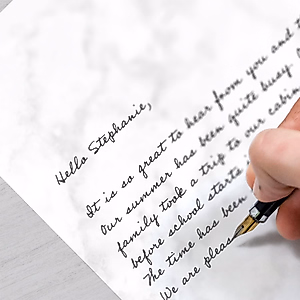 Hello Stephanie,
It is so great to hear from you and
Our summer has been quite busy.
family took a trip to our cabin
before school starts
The time has been
We are pleas